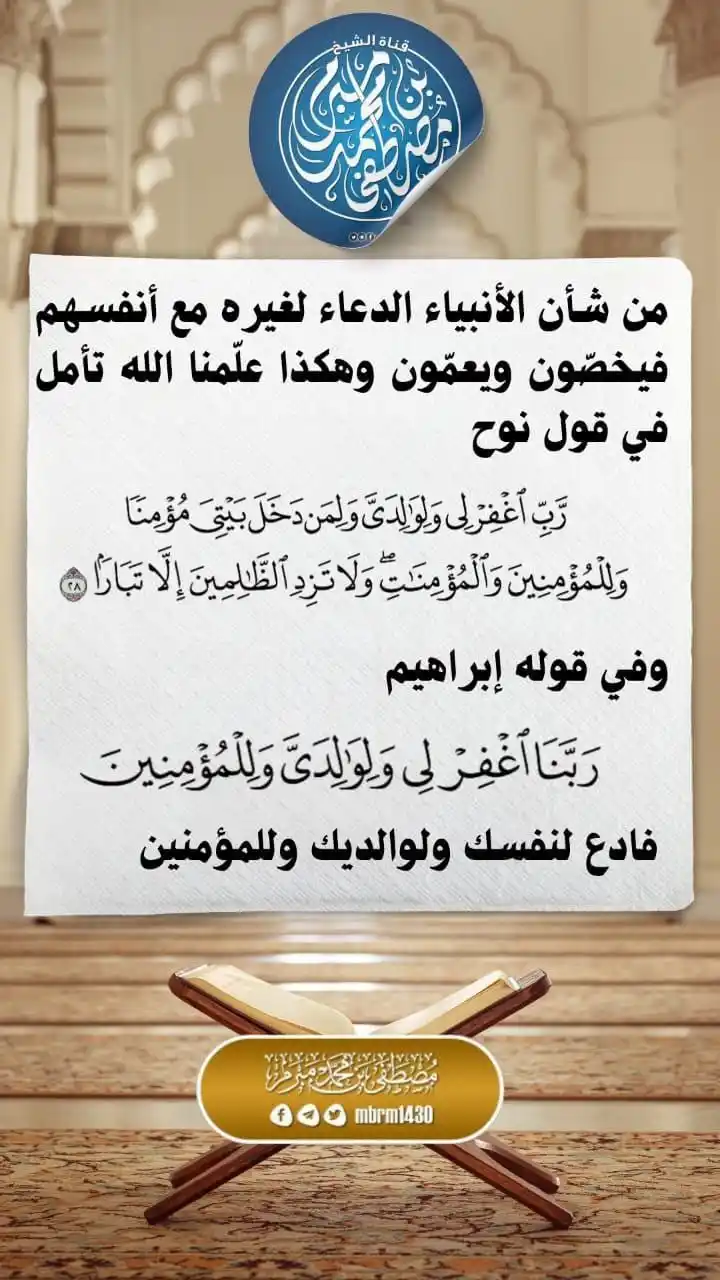 قناة الشيخ
مصطفى بن محمد مبرم
من شأن الأنبياء الدعاء لغيره مع أنفسهم
فيخصّون ويعمّون وهكذا علّمنا الله تأمل
في قول نوح
رَّبِّ ٱغْفِرْ لِى وَلِوَٰلِدَىَّ وَلِمَن دَخَلَ بَيْتِىَ مُؤْمِنًا
وَلِلْمُؤْمِنِينَ وَٱلْمُؤْمِنَٰتِۖ وَلَا تَزِدِ ٱلظَّٰلِمِينَ إِلَّا تَبَارًۢا ٢٨
وفي قوله إبراهيم
رَبَّنَا ٱغْفِرْ لِى وَلِوَٰلِدَىَّ وَلِلْمُؤْمِنِينَ
فادع لنفسك ولوالديك وللمؤمنين
مصطفى بن محمد مبرم
mbrm1430